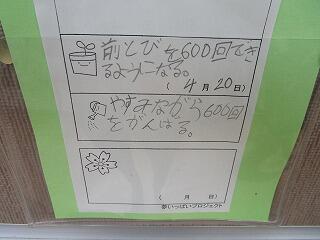 前とびを600回でき
るようになる。
（4月20日）
やすみながら600回
をがんばる。
（　月　日）
夢いっぱいプロジェクト